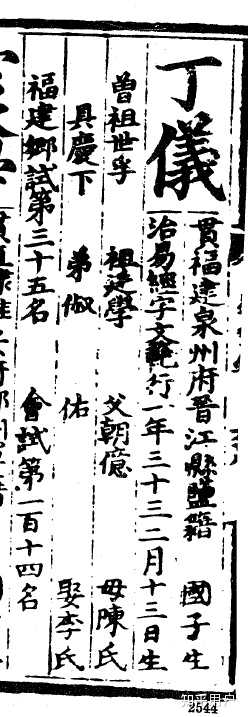 丁儀
貫福建泉州府晉江縣鹽籍 國子生
治易經字文範行一年三十三二月十三日生
曾祖世孚 祖建學 父朝億 母陳氏
具慶下 弟俶 佑 娶李氏
福建鄉試第三十五名 會試第一百十四名
知乎用户
2544